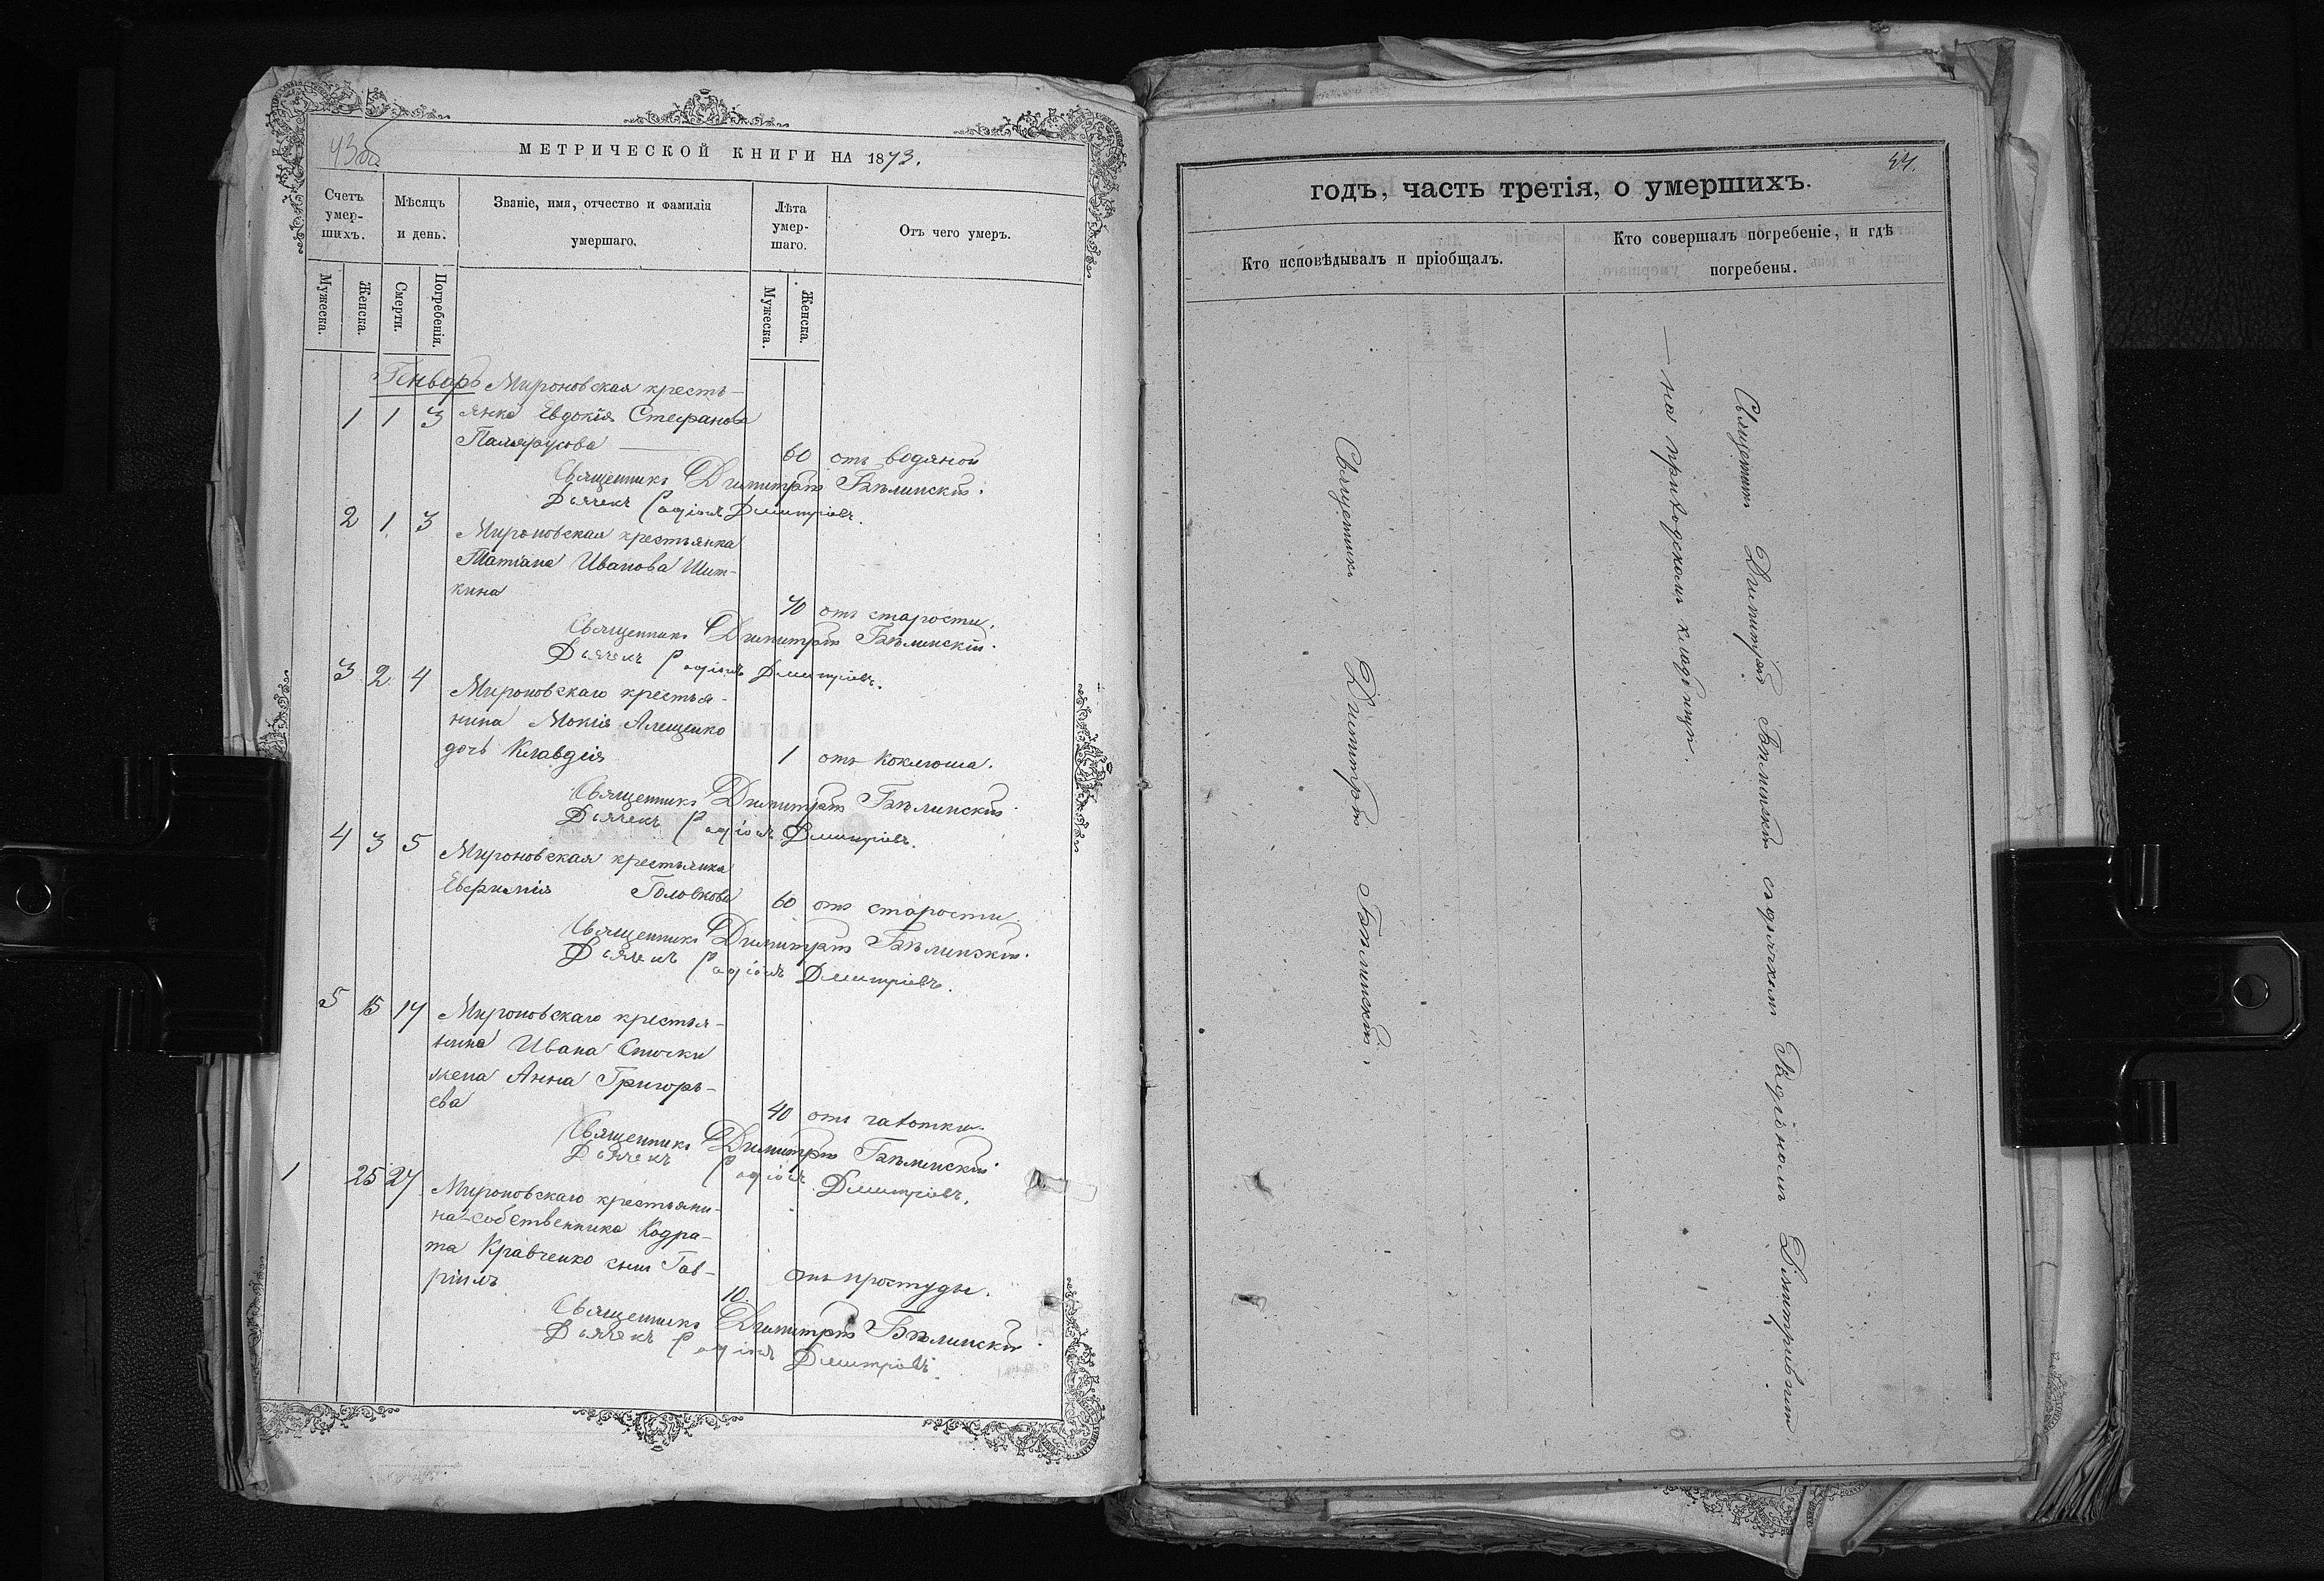 43об
МЕТРИЧЕСКОЙ КНИГИ НА 1873.
Счетъ умер-шихъ.
Мѣсяцъ и день.
Званіе, имя, отчество и фамилія умершаго.
Лѣта умер-шаго.
Отъ чего умеръ.
Мужеска.
Женска.
Смерти.
Погребенія.
Мужеска.
Женска.
Генварь Мироновская кресть-
1 1 3 янка Евдокія Стефанова
60 отъ водяной
Священникъ Димитрій Бѣлинскій.
Дьячекъ Родіонъ Дмитріевъ.
2 1 3 Мироновская крестьянка
Татіана Иванова Шит-
кина
70 отъ старости.
Священникъ Димитрій Бѣлинскій.
Дьячекъ Родіонъ Дмитріевъ.
3 2 4 Мироновскаго крестья-
нина Мокія Алещенко
дочь Клавдія 1 отъ коклюша.
Священникъ Димитрій Бѣлинскій.
Дьячекъ Родіонъ Дмитріевъ.
4 3 5 Мироновская крестьянка
Евфимія Головкова 60 отъ старости.
Священникъ Димитрій Бѣлинскій.
Дьячекъ Родіонъ Дмитріевъ.
5 15 17 Мироновскаго крестья-
нина Ивана Спички
жена Анна Григорь-
ева 40 отъ чахотки.
Священникъ Димитрій Бѣлинскій.
Дьячекъ Родіонъ Дмитріевъ.
1 25 27 Мироновскаго крестьяни-
на-собственника Кодра-
та Кравченко сынъ Гав-
ріилъ 10. отъ простуды.
Священникъ Димитрій Бѣлинскій.
Дьячекъ Родіонъ Дмитріевъ.
44.
годъ, часть третія, о умершихъ.
Кто исповѣдывалъ и пріобщалъ.
Кто совершалъ погребеніе, и гдѣ погребены.
Священникъ Димитрій Бѣлинскій.
Священникъ Димитрій Бѣлинскій съ дьячкомъ Родіономъ Дмитріевымъ
— на приходскомъ кладбищѣ.